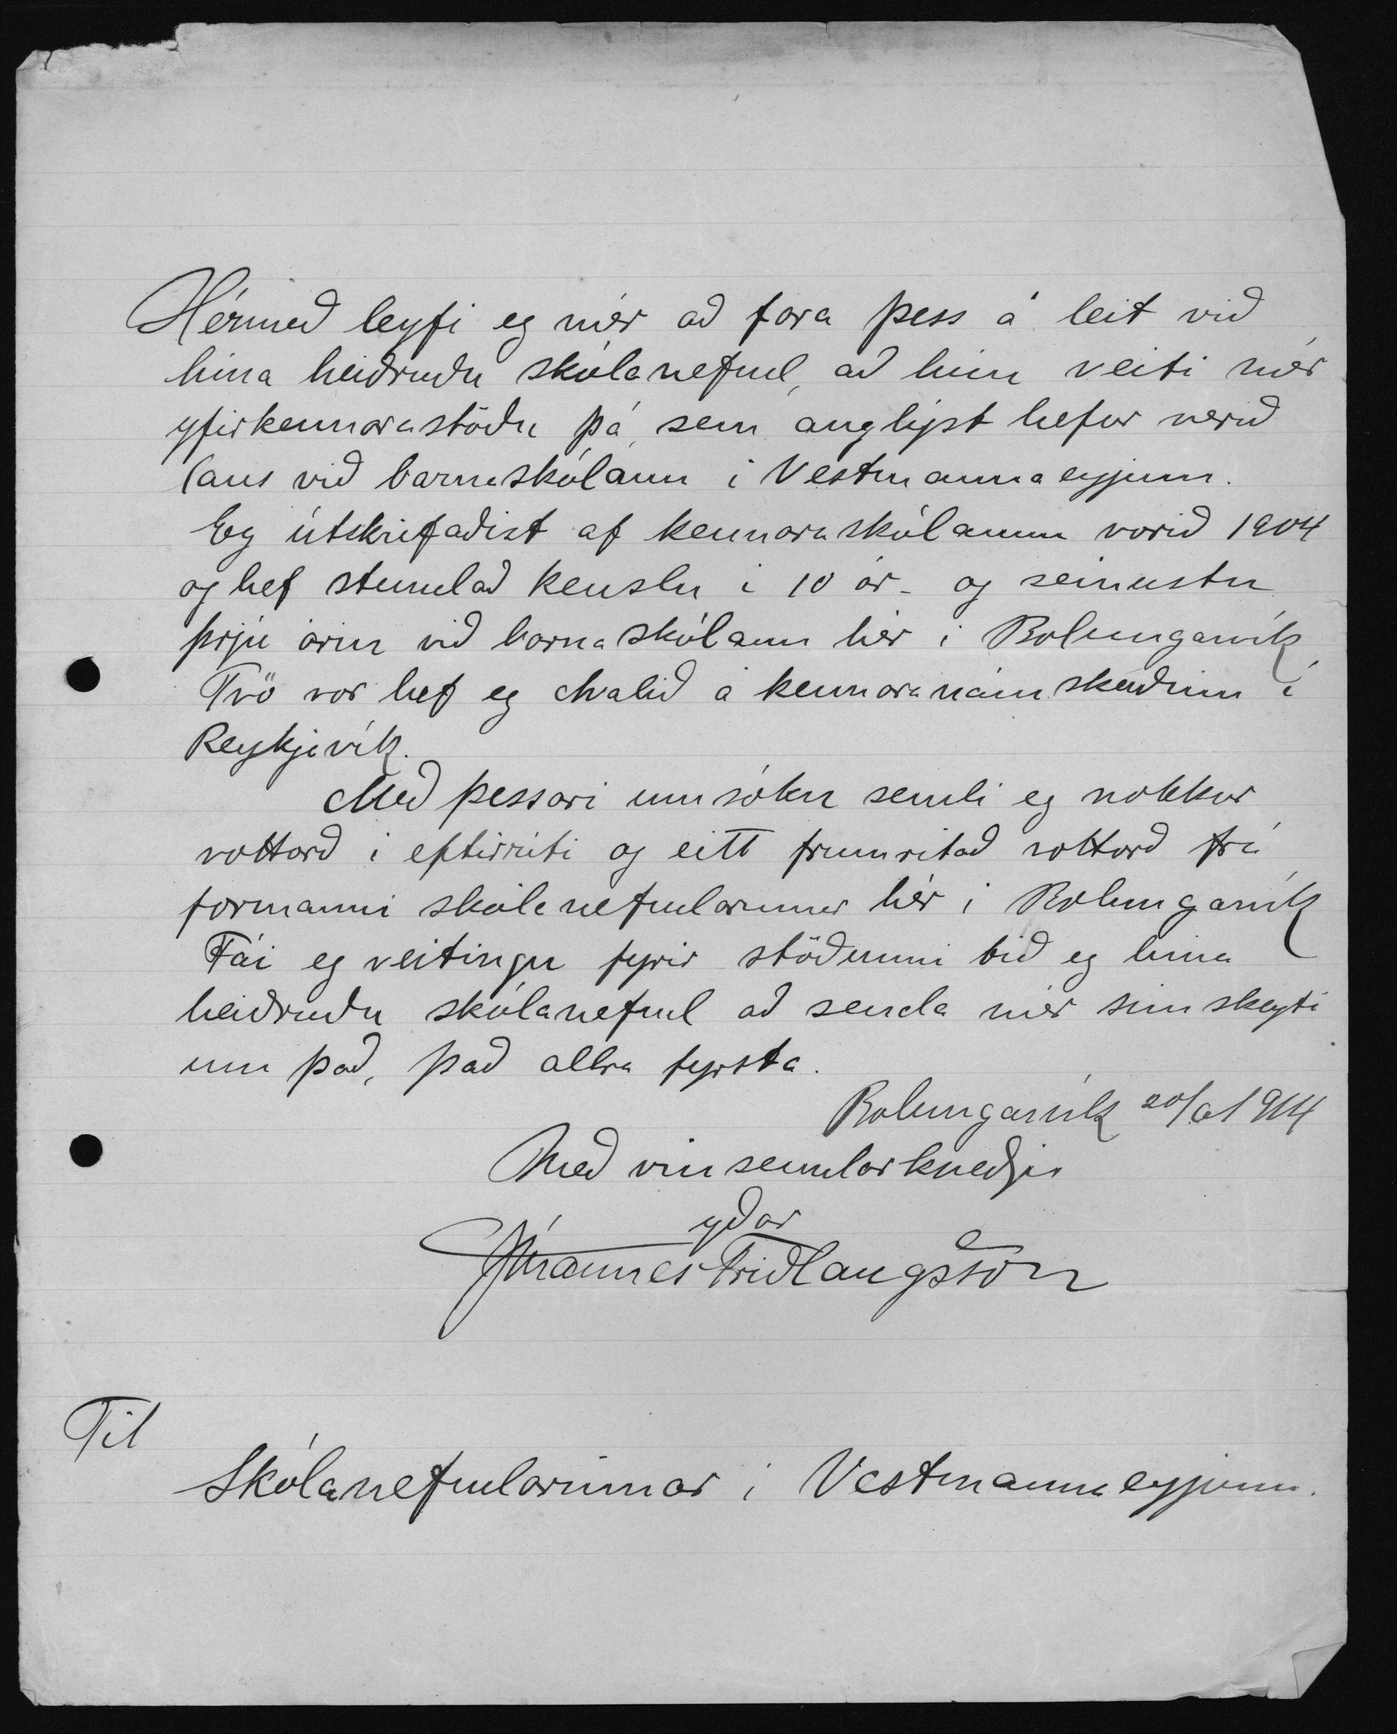 Hérmeð leyfi eg mér að fara þess á leit við
hina heiðruðu skólanefnd, að hún veiti mér
yfirkennarastöðu þá, sem auglýst hefur verið
laus við barnaskólann í Vestmannaeyjum.
Eg útskrifaðist af kennaraskólanum vorið 1904
og hef stundað kenslu í 10 ár - og seinustu
þrjú árin við barnaskólann hér í Bolungarvík
Tvö vor hef eg dvalið á kennaranámskeiðinu í
Reykjavík.
Með þessari umsókn sendi eg nokkur
vottorð í eftirriti og eitt frumritað vottorð frá
formanni skólanefndarinnar hér í Bolungarvík
Fái eg veitingu fyrir stöðunni bið eg hina
heiðruðu skólanefnd að senda mér símskeyti
um það, það allra fyrsta.
Bolungarvík 20/6 1914
Með vinsemdarkveðju
yðar
Jóhannes Friðlaugsson
Til
Skólanefndarinnar í Vestmannaeyjum.